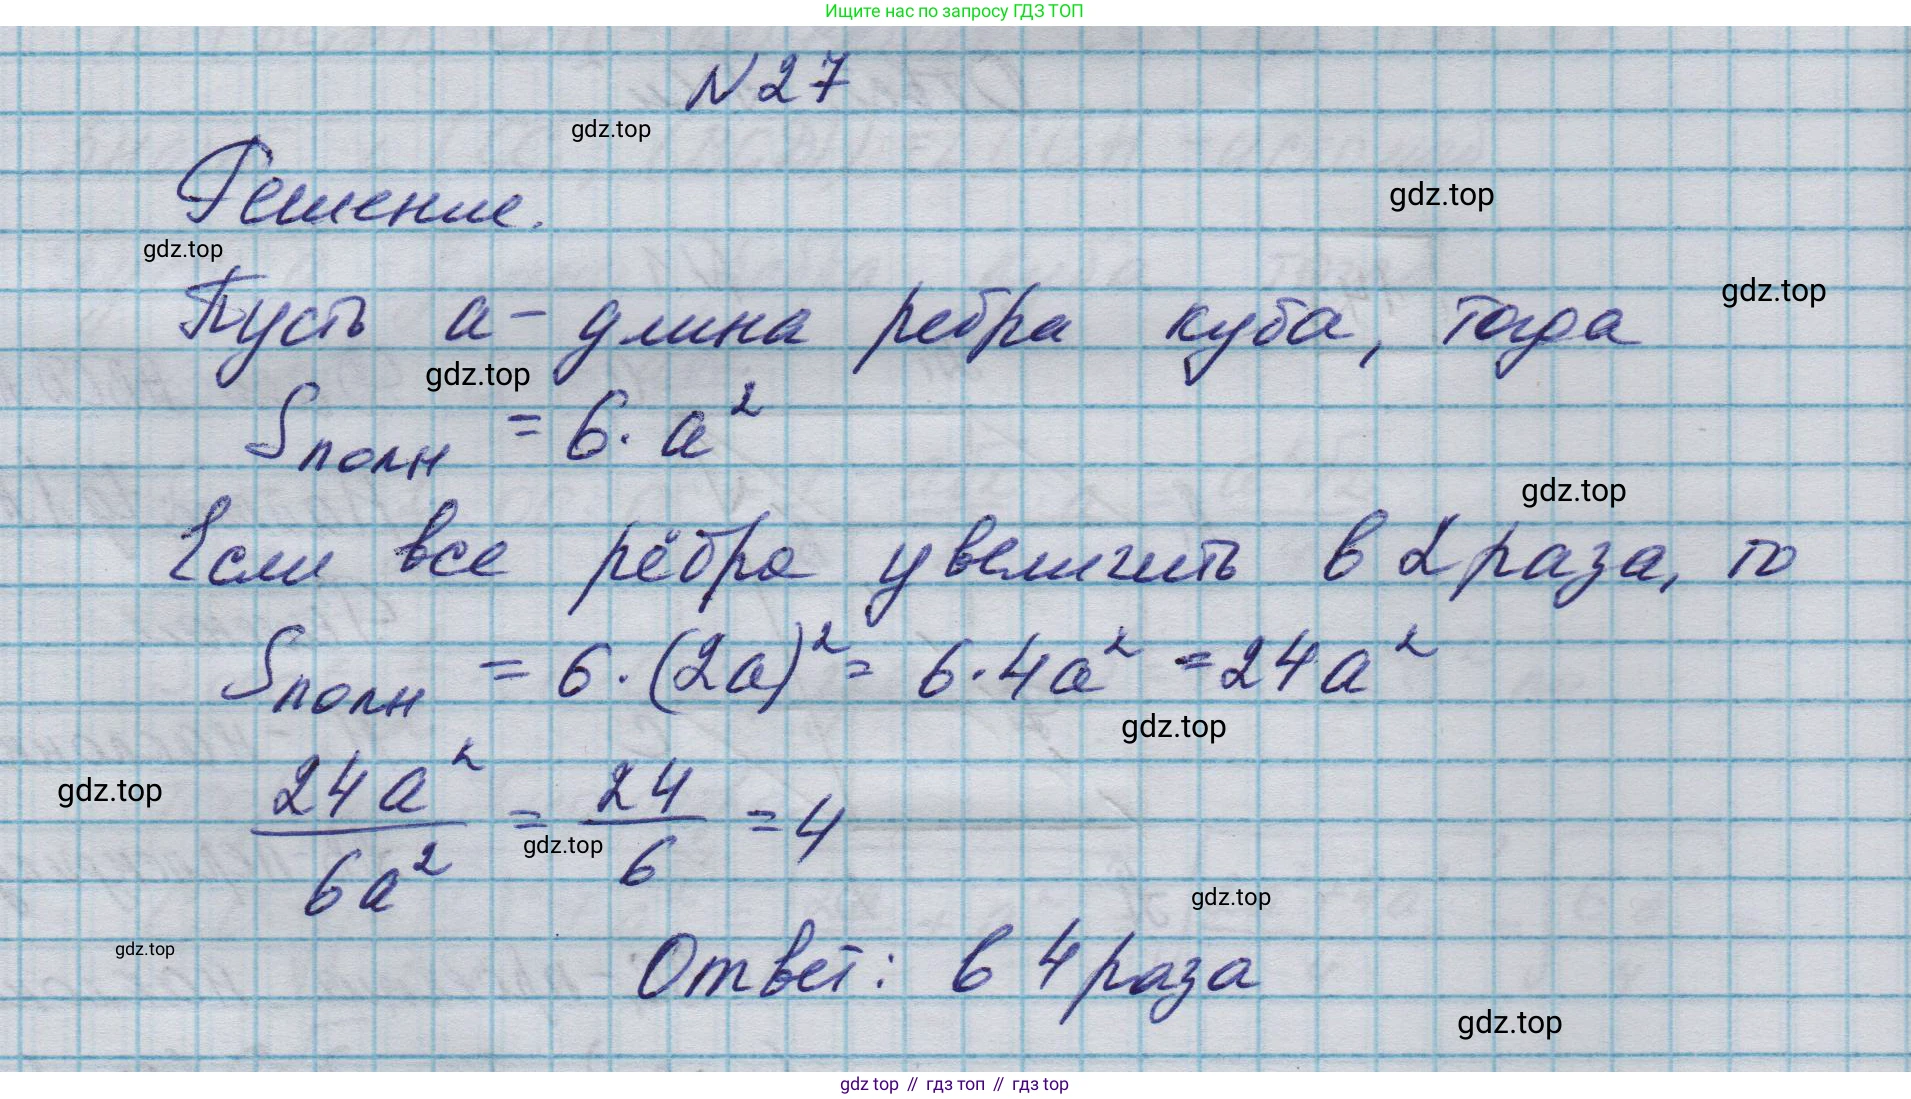 Ищите нас по запросу ГДЗ ТОП
N27
gdz.top
Решение.
gdz.top
gdz.top
Пусть a - длина ребра куба, тогда
gdz.top
gdz.top
Sполн = 6 · a²
gdz.top
Если все рёбра увеличить в 2 раза, то
Sполн = 6 · (2a)² = 6 · 4a² = 24a²
gdz.top
gdz.top
24a²/6a² = 24/6 = 4
gdz.top
gdz.top
gdz.top
Ответ: в 4 раза
gdz.top
gdz top // гдз топ // гдз top